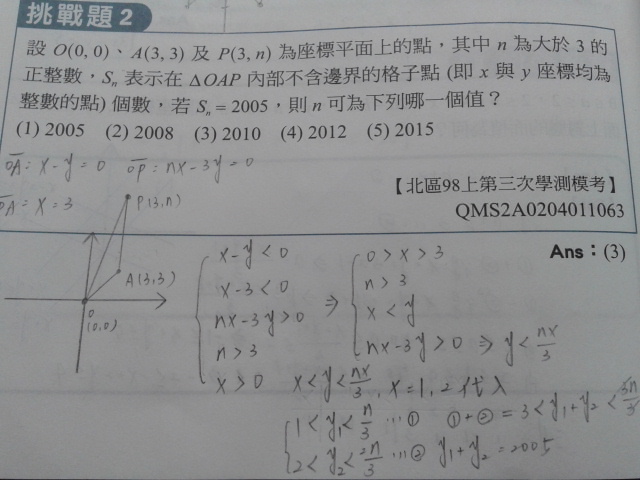 挑戰題2
設 O(0, 0)、A(3, 3) 及 P(3, n) 為座標平面上的點，其中 n 為大於 3 的
正整數，Sₙ 表示在 ΔOAP 內部不含邊界的格子點 (即 x 與 y 座標均為
整數的點) 個數，若 Sₙ = 2005，則 n 可為下列哪一個值？
(1) 2005 (2) 2008 (3) 2010 (4) 2012 (5) 2015
OA: x-y=0 OP: nx-3y=0
【北區98上第三次學測模考】
PA: x=3
P(3,n)
QMS2A0204011063
Ans：(3)
A(3,3)
O
(0,0)
x-y<0
x-3<0
nx-3y>0
n>3
x>0
⇒
0>x>3
n>3
x<y
nx-3y>0 ⇒ y<nx/3
x<y<nx/3, x=1,2代入
1<y₁<n/3 …① ①+②=3<y₁+y₂<3n/3
2<y₂<2n/3 …② y₁+y₂=2005